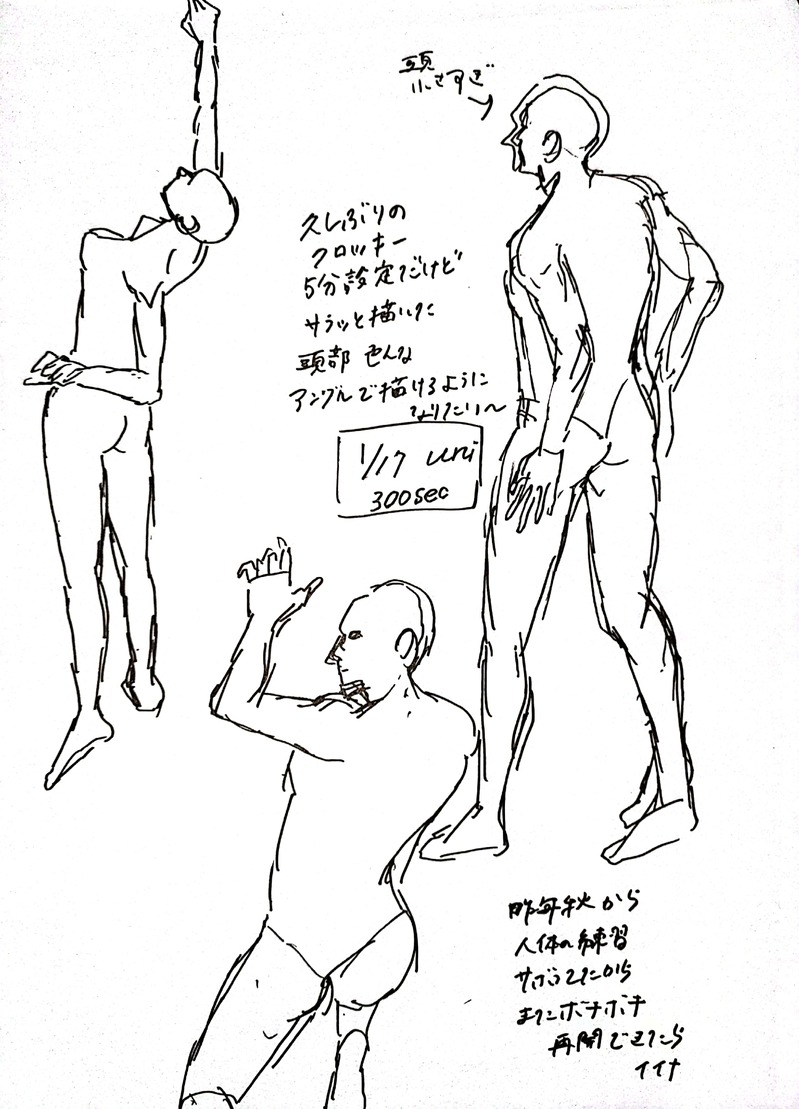 頭
小さすぎ
久しぶりの
クロッキー
5分設定だけど
サラッと描いた
頭部 色んな
アングルで描けるように
なりたい〜
1/17 uni
300sec
昨年秋から
人体の練習
サボってたから
またボチボチ
再開できたら
イイナ